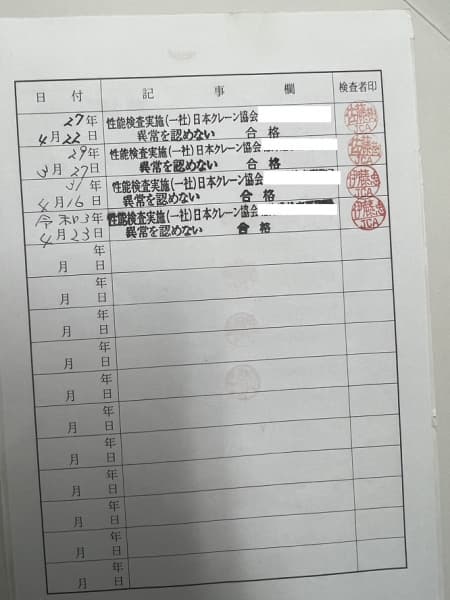 日付 記事欄 検査者印
27年 性能検査実施(一社)日本クレーン協会
4月22日 異常を認めない 合格
29年 性能検査実施(一社)日本クレーン協会
3月27日 異常を認めない 合格
31年 性能検査実施(一社)日本クレーン協会
4月16日 異常を認めない 合格
令和3年 性能検査実施(一社)日本クレーン協会
4月23日 異常を認めない 合格
年
月 日
年
月 日
年
月 日
年
月 日
年
月 日
年
月 日
年
月 日
年
月 日
年
月 日
年
月 日
年
月 日
佐藤
JCA
佐藤
JCA
伊藤
JCA
伊藤
JCA